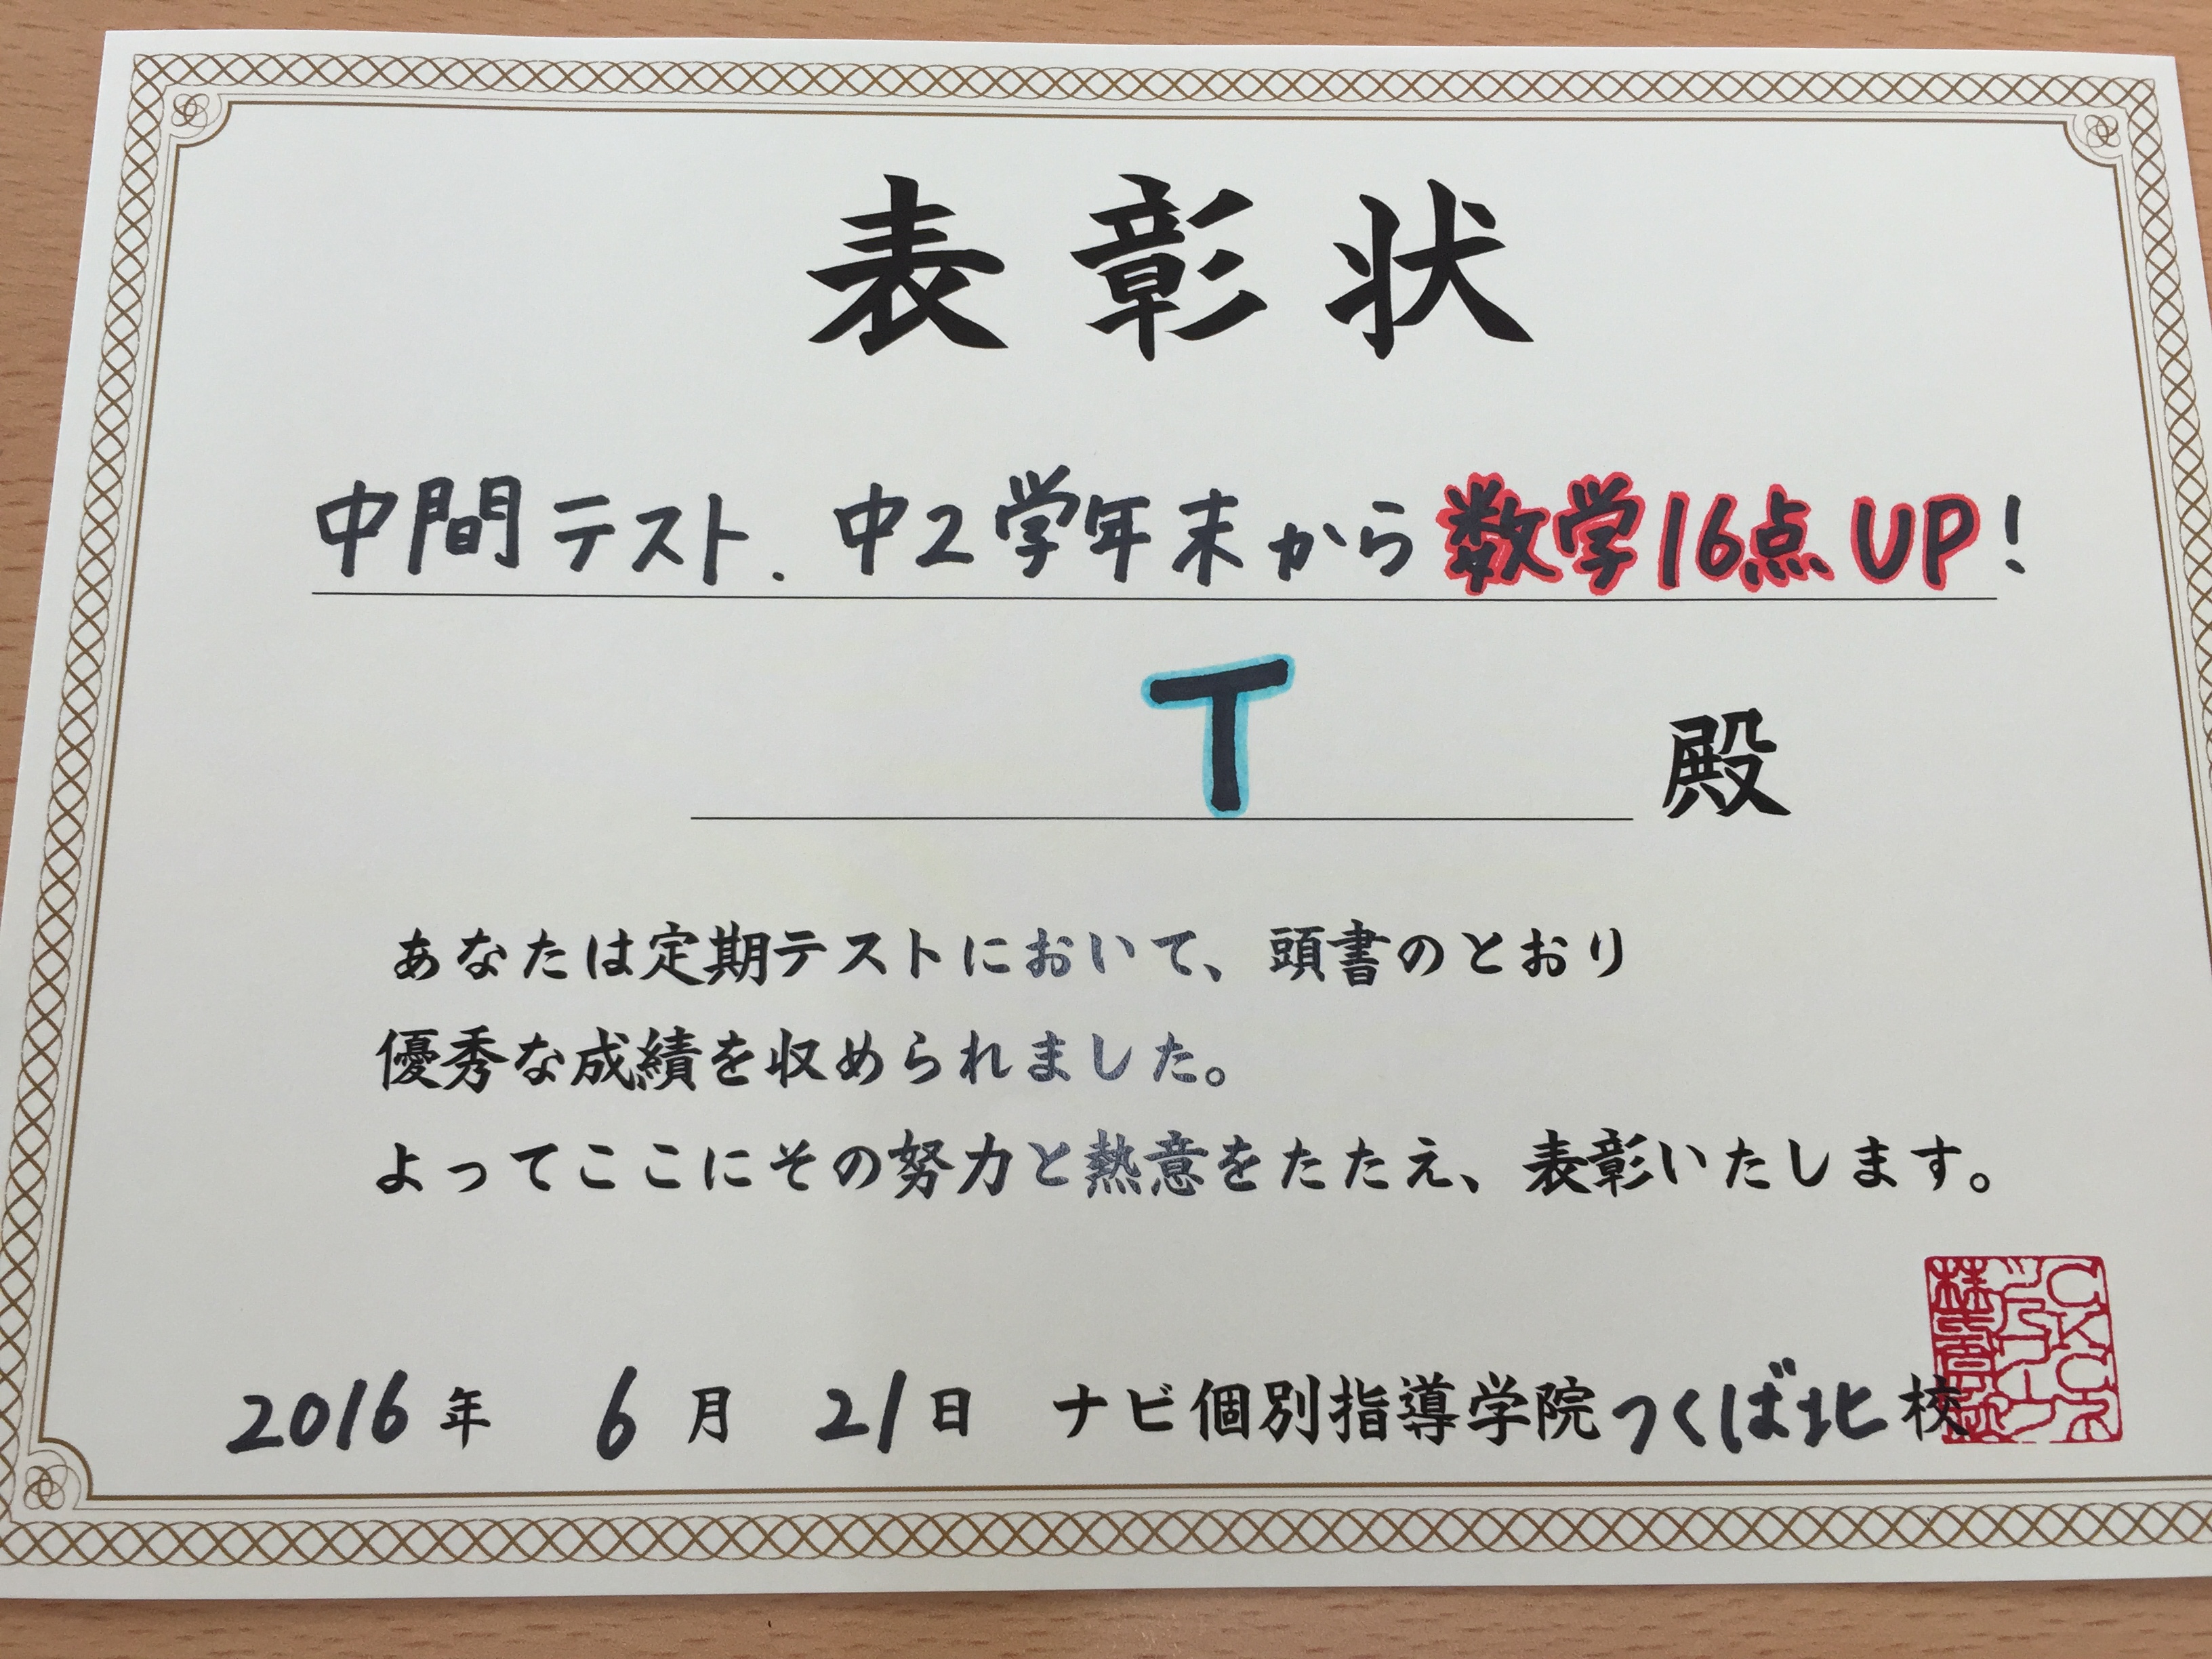 表彰状
中間テスト、中2学年末から数学16点UP!
T 殿
あなたは定期テストにおいて、頭書のとおり
優秀な成績を収められました。
よってここにその努力と熱意をたたえ、表彰いたします。
2016年 6月 21日 ナビ個別指導学院つくば北校